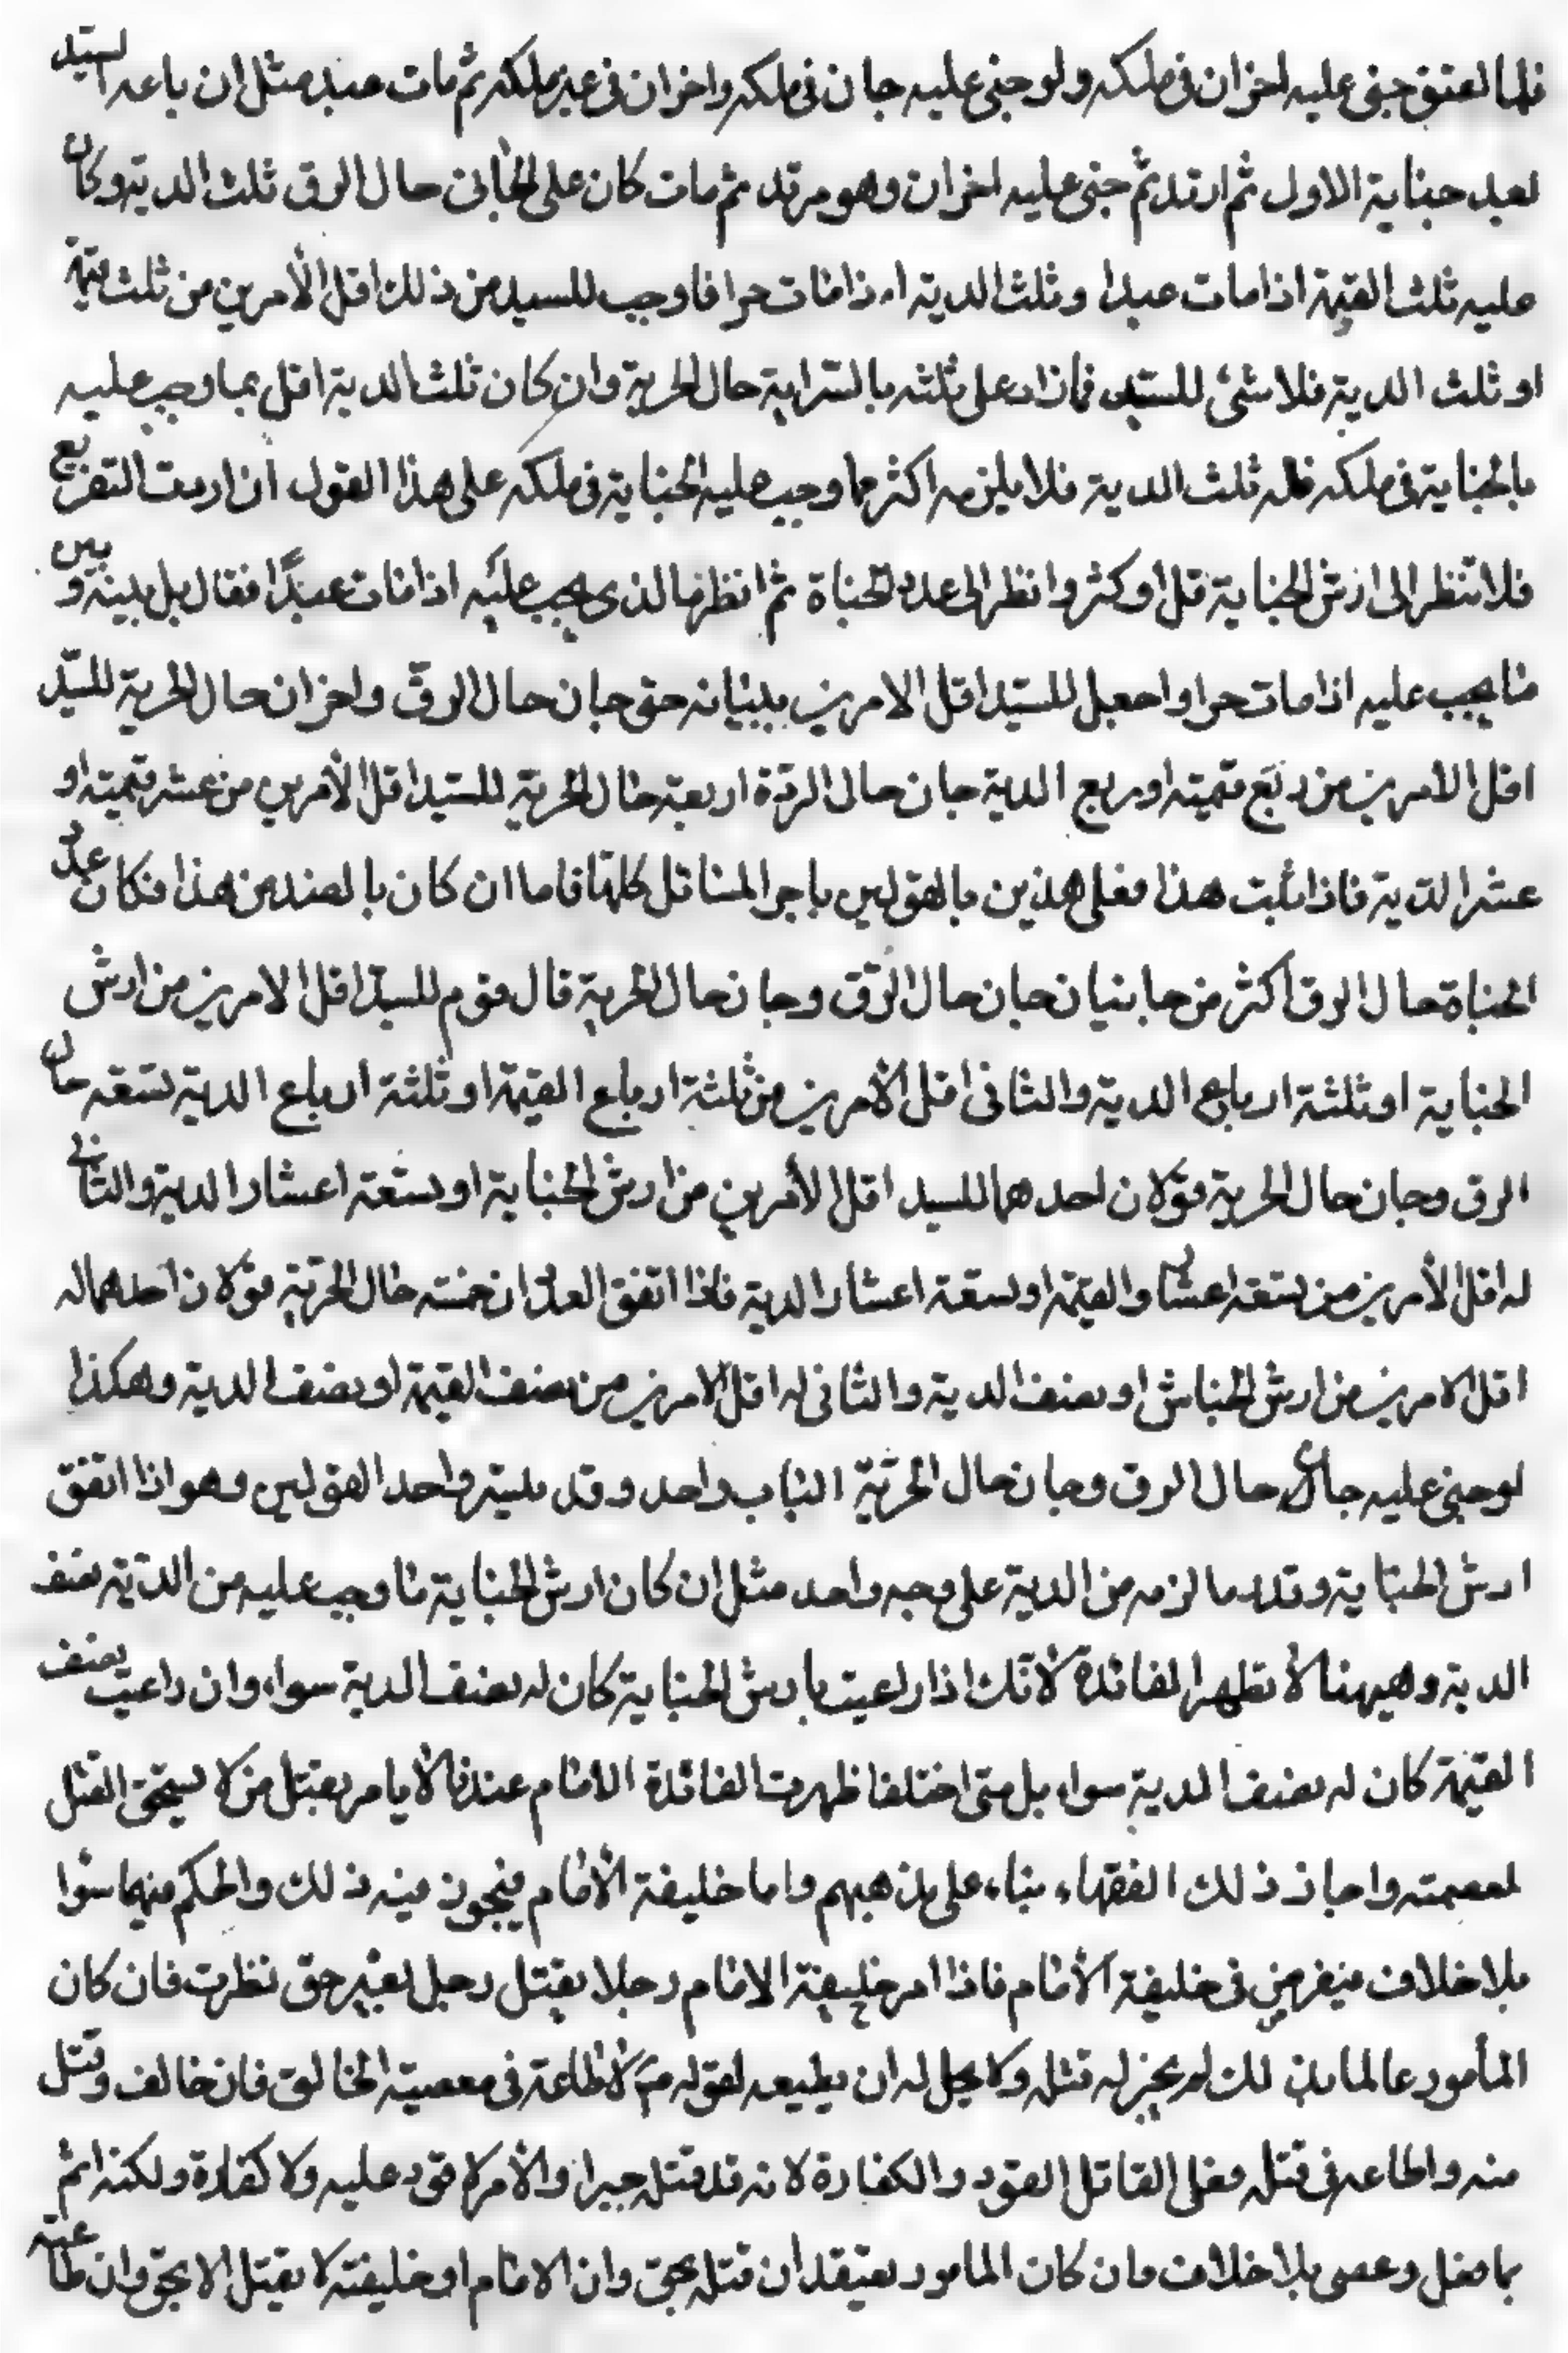 فلما اعتق جنى عليه اخران فى ملكه ولو جنى عليه جان فى ملكه واخران فى غير ملكه ثم مات عبد مثل ان باعه السيد
بعد جناية الاول ثم ارتد ثم جنى عليه اخران وهو مرتد ثم مات كان على الجانى حال الرق ثلث الدية وكان
عليه ثلث القيمة اذا مات عبدا وثلث الدية اذا مات حرا فاوجب للسيد من ذلك اقل الأمرين من ثلث قيمة
او ثلث الدية فلا شئ للسيد فما زاد على ثلثه بالسراية حال الحرية وان كان ثلث الدية اقل بما وجب عليه
بالجناية فى ملكه فله ثلث الدية فلا يلزمه اكثر مما وجب عليه الجناية فى ملكه على هذا القول ان اردت التفريع
فلا تنظر الى ارش الجناية قل او كثر وانظر الى عدد الجناة ثم انظر ما الذى يجب عليه اذا مات عبدًا فقال بل بينه وبين
ما يجب عليه اذا مات حرا واجعل للسيد اقل الامرين بيانه حق جان حال الرق واخران حال الحرية للسيد
اقل الامرين من ربع قيمته او ربع الدية جان حال الرق ة اربعة حال الحرية للسيد اقل الأمرين من عشر قيمته او
عشر الدية فاذا ثبت هذا فعلى هذين بالقولين باجر المسائل كلها فاما ان كان بالضد من هذا فكان عدد
الجناة حال الرق اكثر من جا بنيان جان حال الرق وجان حال الحرية قال قوم للسيد اقل الامرين من ارش
الجناية او ثلثة ارباع الدية والثانى اقل الأمرين من ثلثة ارباع القيمة او ثلثة ارباع الدية تسعة حال
الرق وجان حال الحرية قولان احدهما للسيد اقل الأمرين من ارش الجناية او تسعة اعشار الدية والثانى
له اقل الأمرين من تسعة اعشار والقيمة او تسعة اعشار الدية فاذا اتفق العدد ان خمسه حال الحرية قولان احدهما له
اقل الامرين من ارش الجناش او نصف الدية والثانى له اقل الامرين من نصف القيمة او نصف الدية وهكذا
لو جنى عليه جان حال الرق وجان حال الحرية الباب واحد وقد بينته واحد القولين وهو اذا اتفق
ارش الجناية وقدر ما لزمه من الدية على وجه واحد مثل ان كان ارش الجناية ما وجب عليه من الدية نصف
الدية وهيهنا لا تظهر الفائدة لأنك اذا راعيت بارش الجناية كان له نصف الدية سواء وان راعيت نصف
القيمة كان له نصف الدية سواء بل متى اختلفا ظهرت الفائدة الامام عندنا لا يامر بقتل من لا يستحق القتل
لعصمته واجاز ذلك الفقهاء بناء على مذهبهم واما خليفة الأمام فيجوز فيه ذلك والحكم فيهما سوا
بلا خلاف فيفرض فى خليفة الأمام فاذا امر خليفة الامام رجلا بقتل رجل بغير حق نظرت فان كان
المأمور عالما بذلك لم يجز له قتله ولا يحل له ان يطيعه لقوله م لا طاعة فى معصية الخالق فان خالف وقتل
منه واطاعه فى قتله فعلى القاتل القود والكفارة لانه قد قتله جبرا والأمر لا قود عليه ولا كفارة ولكنه اثم
بما فعل وعصى بلا خلاف فان كان المامور يعتقد أن قتله بحق وان الامام او خليفته لا يقتل الا بحق وان طاعته